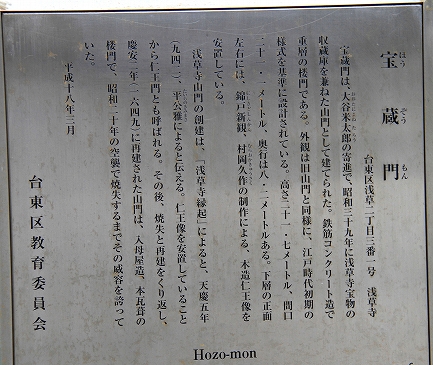 宝蔵門
ほうぞうもん
台東区浅草二丁目三番一号　浅草寺
宝蔵門は、大谷米太郎の寄進で、昭和三十九年に浅草寺宝物の
収蔵庫を兼ねた山門として建てられた。鉄筋コンクリート造で
重層の楼門である。外観は旧山門と同様に、江戸時代初期の
様式を基準に設計されている。高さ二十一・七メートル、間口
二十一・一メートル、奥行は八・二メートルある。下層の正面
左右には、錦戸新観、村岡久作の制作による、木造仁王像を
安置している。
浅草寺山門の創建は、「浅草寺縁起」によると、天慶五年
（九四二）、平公雅によると伝える。仁王像を安置していること
から仁王門とも呼ばれる。その後、焼失と再建をくり返し、
慶安二年（一六四九）に再建された山門は、入母屋造、本瓦葺の
楼門で、昭和二十年の空襲で焼失するまでその威容を誇って
いた。
平成十八年三月
台東区教育委員会
Hozo-mon